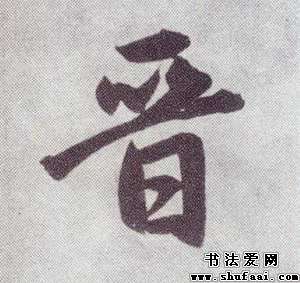 晋
书法爱网
www.shufaai.com